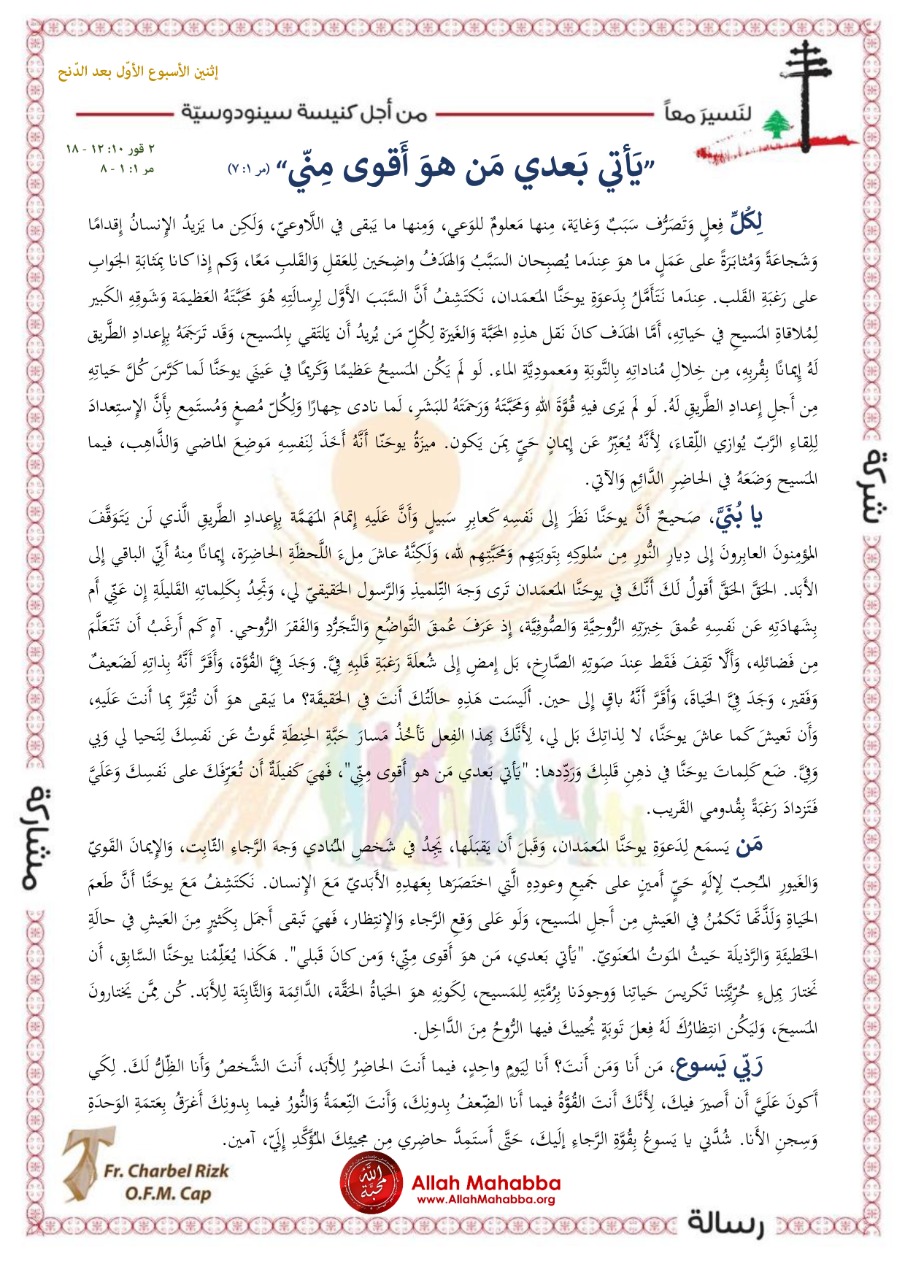 إثنين الأسبوع الأوّل بعد الدّنح
لنَسيرَ معاً
من أجل كنيسة سينودوسيّة
٢ قور ١٠: ١٢ - ١٨
مر ١: ١ - ٨
”يَأتي بَعدي مَن هوَ أَقوى مِنّي“ (مر ١: ٧)
لِكُلِّ فِعلٍ وَتَصَرُّف سَبَبٌ وَغايَة، مِنها مَعلومٌ للوَعي، وَمِنها ما يَبقى في اللَّاوعيّ، وَلَكِن ما يَزيدُ الإنسانُ إقدامًا
وَشجاعَةً وَمُثابَرَةً على عَمَلٍ ما هوَ عِندَما يُصبِحان السَبَّبُ وَالهَدَفُ واضِحَين لِلعَقلِ وَالقَلبِ مَعًا، وَكَم إذا كانا بِمَثابَةِ الجَوابِ
على رَغبَةِ القَلب. عِندَما نَتَأَمَّلُ بِدَعوَةِ يوحَنَّا المَعمَدان، نَكتَشِفُ أَنَّ السَّبَبَ الأَوَّلَ لِرِسالَتِهِ هُوَ مَحَبَّتَهُ العَظيمَة وَشَوقِهِ الكَبير
لِمُلاقاةِ المَسيحِ في حَياتِهِ، أَمَّا الهَدَف كانَ نَقل هذِهِ المَحَبَّة وَالغَيرَة لِكُلِّ مَن يُريدُ أَن يَلتَقي بِالمَسيح، وَقَد تَرجَمَهُ بِإعدادِ الطَّريق
لَهُ إيمانًا بِقُربِهِ، مِن خِلالِ مُناداتِهِ بِالتَّوبَةِ ومَعموديَّةِ الماء. لَو لَم يَكُن المَسيحُ عَظيمًا وَكَريمًا في عَينَي يوحَنَّا لَما كَرَّسَ كُلَّ حَياتِهِ
مِن أَجلِ إعدادِ الطَّريقِ لَهُ. لَو لَم يَرى فيهِ قُوَّةَ اللهِ وَمَحَبَّتَهُ وَرَحمَتَهُ للبَشَر، لَما نادى جِهارًا وَلِكُلّ مُصغٍ وَمُستَمِع بِأَنَّ الإستِعدادَ
لِلِقاءِ الرَّبّ يُوازي اللِّقاءَ، لِأَنَّهُ يُعَبِّرُ عَن إيمانٍ حَيٍّ بِمَن يَكون. ميزَةُ يوحَنّا أَنَّهُ أَخَذَ لِنَفسِهِ مَوضِعَ الماضي وَالذَّاهِب، فيما
المَسيح وَضَعَهُ في الحاضِرِ الدَّائِمِ وَالآتي.
يا بُنَيَّ، صَحيحٌ أَنَّ يوحَنَّا نَظَرَ إلى نَفسِهِ كَعابِرِ سَبيلٍ وَأَنَّ عَلَيهِ إتمامَ المَهَمَّة بِإعدادِ الطَّريقِ الَّذي لَن يَتَوَقَّفَ
المؤمِنونَ العابِرونَ إلى دِيارِ النُّورِ مِن سُلوكِهِ بِتَوبَتِهِم وَمَحَبَّتِهِم لله، وَلَكِنَّهُ عاشَ مِلءَ اللَّحظَةِ الحاضِرَة، إيمانًا مِنهُ أَنّي الباقي إلى
الأَبَد. الحَقَّ الحَقَّ أَقولُ لَكَ أَنَّكَ في يوحَنَّا المَعمَدان تَرَى وَجهَ التِّلميذِ وَالرَّسول الحَقيقيّ لي، وَتَجِدُ بِكَلِماتِهِ القَليلَةِ إن عَنّي أَم
بِشَهادَتِهِ عَن نَفسِهِ عُمقَ خِبرَتِهِ الرُّوحِيَّةِ وَالصُّوفِيَّة، إذ عَرَفَ عُمقَ التَّواضُعِ وَالتَّجَرُّدِ وَالفَقرَ الرُّوحي. آهٍ كَم أَرغَبُ أَن تَتَعَلَّمَ
مِن فَضائِله، وَأَلَّا تَقِفَ فَقَط عِندَ صَوتِهِ الصَّارِخِ، بَل إمضِ إلى شُعلَةِ رَغبَةِ قَلبِهِ فيَّ. وَجَدَ فيَّ القُوَّة، وَأَقَرَّ أَنَّهُ بِذاتِهِ لَضَعيفٌ
وَفَقير، وَجَدَ فيَّ الحَياةَ، وَأَقَرَّ أَنَّهُ باقٍ إلى حين. أَلَيسَت هَذِهِ حالَتُكَ أَنتَ في الحَقيقَة؟ ما يَبقى هوَ أَن تُقِرَّ بِما أَنتَ عَلَيهِ،
وَأَن تَعيشَ كَما عاشَ يوحَنَّا، لا لِذاتِكَ بَل لي، لِأَنَّكَ بِهذا الفِعل تَأخُذُ مَسارَ حَبَّةِ الحِنطَةِ تَموتُ عَن نَفسِكَ لِتَحيا لي وَبي
وَفيَّ. ضَع كَلِماتَ يوحَنَّا في ذِهنِ قَلبِكَ وَرَدِّدها: "يَأتي بَعدي مَن هو أَقوى مِنّي"، فَهيَ كَفيلَةٌ أَن تُعَرِّفَكَ على نَفسِكَ وَعَلَيَّ
فَتَزدادَ رَغبَةً بِقُدومي القَريب.
مَنْ يَسمَع لِدَعوَةِ يوحَنَّا المَعمَدان، وَقَبلَ أَن يَقبَلَها، يَجِدُ في شَخصِ المُنادي وَجهَ الرَّجاءِ الثَّابِت، وَالإيمانَ القَوِيّ
وَالغَيورِ المُحِبّ لِإلَهٍ حَيّ أَمينٍ على جَميعِ وعودِهِ الَّتي اختَصَرَها بِعَهدِهِ الأَبَديّ مَعَ الإنسان. نَكتَشِفُ مَعَ يوحَنَّا أَنَّ طَعمَ
الحَياةِ وَلَذَّتَها تَكمُنُ في العَيشِ مِن أَجلِ المَسيح، وَلَو عَلى وَقعِ الرَّجاء وَالإنتِظار، فَهيَ تَبقى أَجمَل بِكَثيرٍ مِنَ العَيشِ في حالَةِ
الخَطيئَةِ وَالرَّذيلَة حَيثُ المَوتُ المَعنَويّ. "يَأتي بَعدي، مَن هوَ أَقوى مِنّي؛ وَمن كانَ قَبلي". هَكَذا يُعَلِّمُنا يوحَنَّا السَّابِق، أَن
نَختارَ بِمِلءِ حُرّيَّتِنا تَكريسَ حَياتِنا وَوجودَنا بِرُمَّتِهِ لِلمَسيح، لِكَونِهِ هوَ الحَياةُ الحَقَّة، الدَّائِمَة وَالثَّابِتَة لِلأَبَد. كُن مِمَّن يَختارونَ
المَسيحَ، وَليَكُن انتِظارُكَ لَهُ فِعلَ تَوبَةٍ يُحييكَ فيها الرُّوحُ مِنَ الدَّاخِل.
رَبّي يَسوع، مَن أَنا وَمَن أَنتَ؟ أَنا لِيَومٍ واحِدٍ، فيما أَنتَ الحاضِرُ لِلأَبَد، أَنتَ الشَّخصُ وَأَنا الظِّلُّ لَكَ. لِكَي
أَكونَ عَلَيَّ أَن أَصيرَ فيكَ، لِأَنَّكَ أَنتَ القُوَّةُ فيما أَنا الضّعفُ بِدونِكَ، وَأَنتَ النِّعمَةُ وَالنُّورُ فيما بِدونِكَ أَغرَقُ بِعَتمَةِ الوَحدَةِ
وَسِجنِ الأَنا. شُدَّني يا يَسوعُ بِقُوَّةِ الرَّجاءِ إلَيكَ، حَتَّى أَستَمِدَّ حاضِري مِن مَجيئِكَ المُؤَّكَّدِ إلَيَّ، آمين.
شركة
مشاركة
رسالة
Fr. Charbel Rizk
O.F.M. Cap
الله محبّة
Allah Mahabba
www.AllahMahabba.org